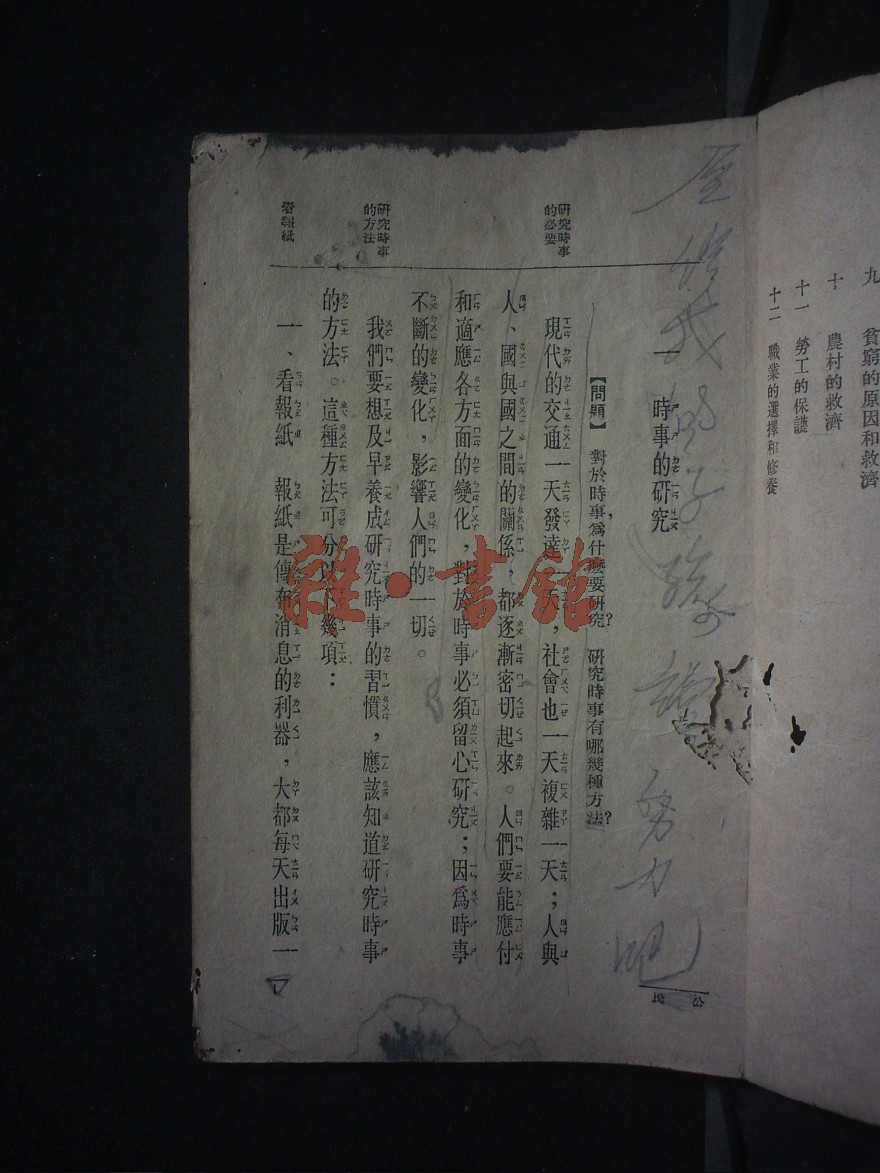 九　貧窮的原因和救濟
十　農村的救濟
十一　勞工的保護
十二　職業的選擇和修養
公民
一　時事的研究
【問題】　對於時事，爲什麼要研究？　研究時事有哪幾種方法？
研究時事的必要
現代的交通一天發達一天，社會也一天複雜一天；人與
人、國與國之間的關係，都逐漸密切起來。人們要能應付
和適應各方面的變化，對於時事必須留心研究；因爲時事
不斷的變化，影響人們的一切。
研究時事的方法
我們要想及早養成研究時事的習慣，應該知道研究時事
的方法。這種方法可分以下幾項：
看報紙
一、看報紙　報紙是傳布消息的利器，大都每天出版一
雜·書館
努力吧